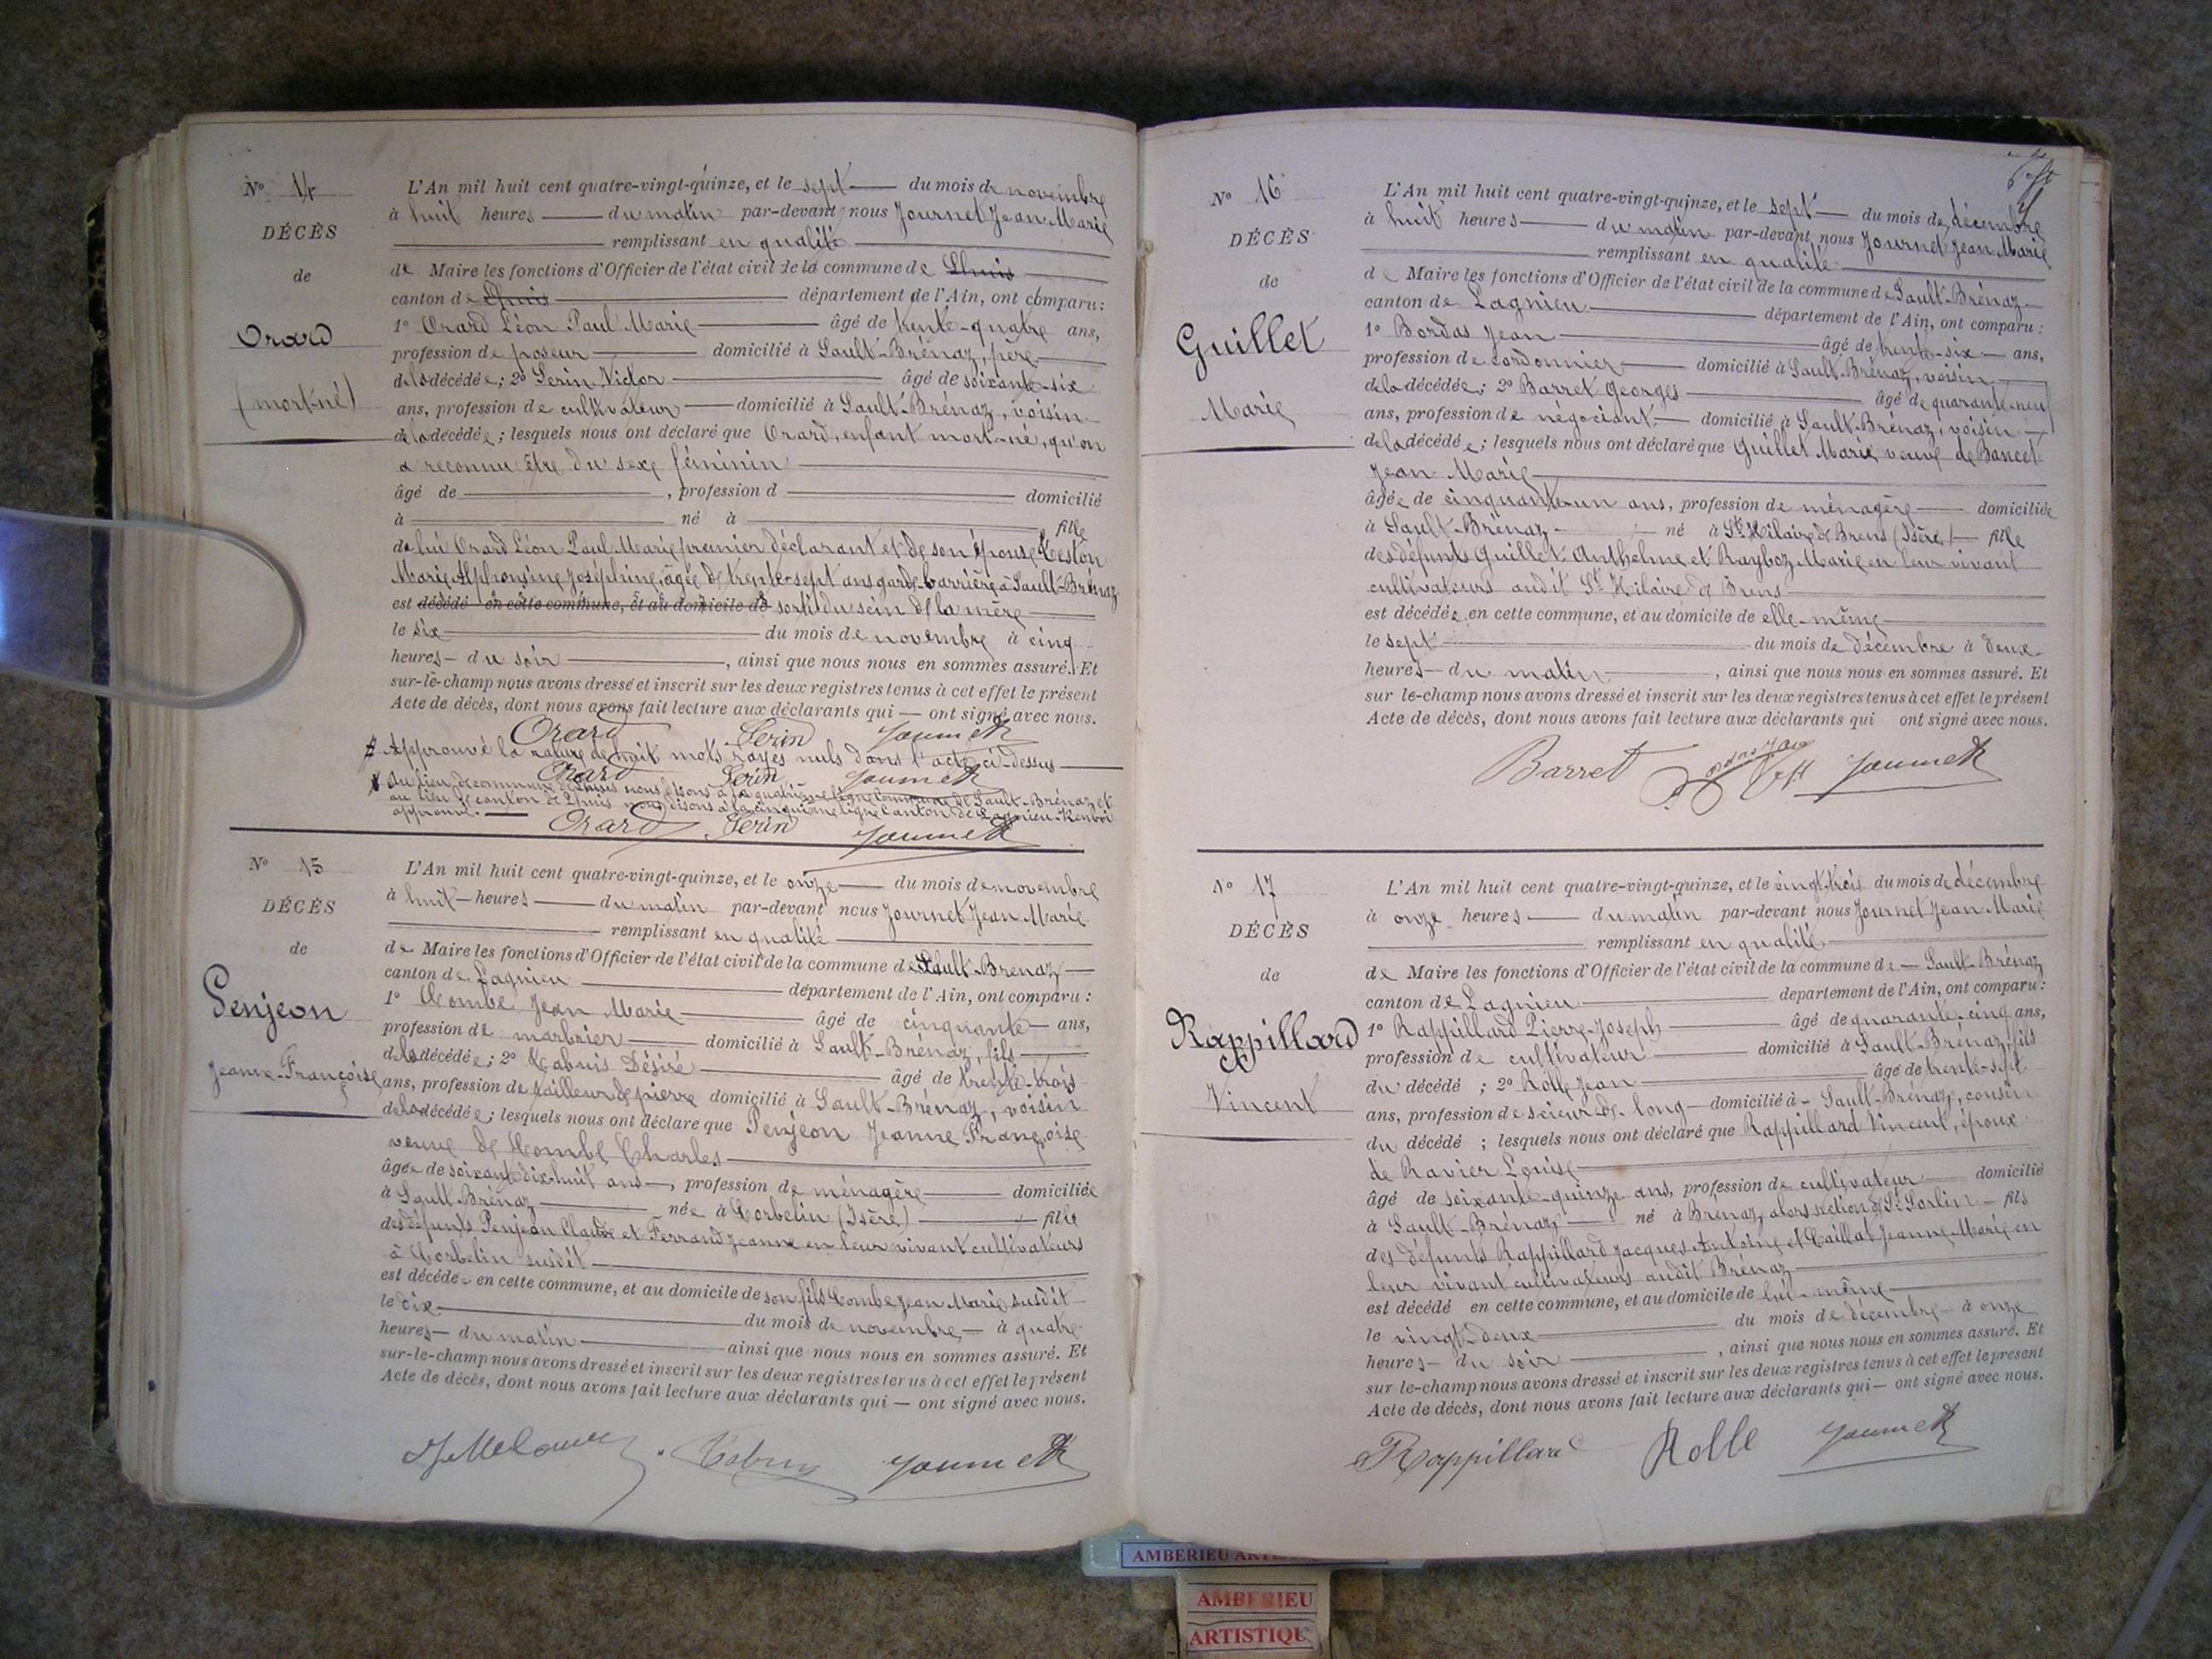 N° 14
DÉCÈS
de
Orard
(mort-né)
L'An mil huit cent quatre-vingt-quinze, et le sept du mois de novembre
à huit heures du matin par-devant nous Journet Jean Marie
remplissant en qualité
de Maire les fonctions d'Officier de l'état civil de la commune de Lhuis
canton de Lhuis département de l'Ain, ont comparu :
1° Orard Léon Paul Marie âgé de trente-quatre ans,
profession de poseur domicilié à Sault-Brénaz, père
de la décédée ; 2° Serin Victor âgé de soixante-six
ans, profession de cultivateur domicilié à Sault-Brénaz, voisin
de la décédée ; lesquels nous ont déclaré que Orard, enfant mort-né, qu'on
a reconnu être du sexe féminin
âgé de , profession d domicilié
à né à fille
de lui Orard Léon Paul Marie premier déclarant et de son épouse Teston
Marie Alphonsine Joséphine, âgée de trente-sept ans garde-barrière à Sault-Brénaz
est décédé en cette commune, et au domicile de sorti du sein de la mère
le six du mois de novembre à cinq
heures du soir , ainsi que nous nous en sommes assuré. Et
sur-le-champ nous avons dressé et inscrit sur les deux registres tenus à cet effet le présent
Acte de décès, dont nous avons fait lecture aux déclarants qui — ont signé avec nous.
Orard Serin Journet
Approuvé la rature de huit mots rayés nuls dans l'acte ci-dessus
Orard Serin Journet
Au lieu de commune de Lhuis nous disons à la quatrième ligne commune de Sault-Brénaz et
au lieu de canton de Lhuis nous disons à la cinquième ligne canton de Lagnieu. Renvoi
approuvé.
Orard Serin Journet
N° 15
DÉCÈS
de
Penjeon
Jeanne-Françoise
L'An mil huit cent quatre-vingt-quinze, et le onze du mois de novembre
à huit heures du matin par-devant nous Journet Jean Marie
remplissant en qualité
de Maire les fonctions d'Officier de l'état civil de la commune de Sault-Brenaz
canton de Lagnieu département de l'Ain, ont comparu :
1° Combe Jean Marie âgé de cinquante ans,
profession de marbrier domicilié à Sault-Brénaz, fils
de la décédée ; 2° Cabuis Désiré âgé de trente-trois
ans, profession de tailleur de pierre domicilié à Sault-Brénaz, voisin
de la décédée ; lesquels nous ont déclaré que Penjeon Jeanne Françoise
veuve de Combe Charles
âgée de soixante dix-huit ans , profession de ménagère domiciliée
à Sault-Brénaz née à Corbelin (Isère) fille
des défunts Penjeon Claude et Ferrand Jeanne en leur vivant cultivateurs
à Corbelin susdit
est décédée en cette commune, et au domicile de son fils Combe Jean Marie susdit
le dix du mois de novembre à quatre
heures du matin ainsi que nous nous en sommes assuré. Et
sur-le-champ nous avons dressé et inscrit sur les deux registres tenus à cet effet le présent
Acte de décès, dont nous avons fait lecture aux déclarants qui — ont signé avec nous.
Journet
N° 16
DÉCÈS
de
Guillet
Marie
L'An mil huit cent quatre-vingt-quinze, et le sept du mois de décembre
à huit heures du matin par-devant nous Journet Jean Marie
remplissant en qualité
de Maire les fonctions d'Officier de l'état civil de la commune de Sault-Brénaz
canton de Lagnieu département de l'Ain, ont comparu :
1° Bordas Jean âgé de trente-six ans,
profession de cordonnier domicilié à Sault-Brénaz, voisin
de la décédée ; 2° Barret Georges âgé de quarante-neuf
ans, profession de négociant domicilié à Sault-Brénaz, voisin
de la décédée ; lesquels nous ont déclaré que Guillet Marie veuve de Bancet
Jean Marie
âgée de cinquante-un ans, profession de ménagère domiciliée
à Sault-Brénaz né à St Hilaire de Brens (Isère) fille
des défunts Guillet Anthelme et Rayboz Marie en leur vivant
cultivateurs audit St Hilaire de Brens
est décédée en cette commune, et au domicile de elle-même
le sept du mois de décembre à deux
heures du matin , ainsi que nous nous en sommes assuré. Et
sur le-champ nous avons dressé et inscrit sur les deux registres tenus à cet effet le présent
Acte de décès, dont nous avons fait lecture aux déclarants qui ont signé avec nous.
Barret Journet
N° 17
DÉCÈS
de
Rappillard
Vincent
L'An mil huit cent quatre-vingt-quinze, et le vingt-trois du mois de décembre
à onze heures du matin par-devant nous Journet Jean Marie
remplissant en qualité
de Maire les fonctions d'Officier de l'état civil de la commune de Sault-Brénaz
canton de Lagnieu departement de l'Ain, ont comparu :
1° Rappillard Pierre-Joseph âgé de quarante-cinq ans,
profession de cultivateur domicilié à Sault-Brénaz, fils
du décédé ; 2° Rolle Jean âgé de trente-sept
ans, profession de scieur de long domicilié à Sault-Brénaz, cousin
du décédé ; lesquels nous ont déclaré que Rappillard Vincent, époux
de Ravier Louise
âgé de soixante-quinze ans, profession de cultivateur domicilié
à Sault-Brénaz né à Brénaz, alors section de St Sorlin fils
des défunts Rappillard Jacques Antoine et Caillat Jeanne Marie en
leur vivant cultivateurs audit Brénaz
est décédé en cette commune, et au domicile de lui-même
le vingt-deux du mois de décembre à onze
heures du soir , ainsi que nous nous en sommes assuré. Et
sur le-champ nous avons dressé et inscrit sur les deux registres tenus à cet effet le present
Acte de décès, dont nous avons fait lecture aux déclarants qui — ont signé avec nous.
Rappillard Rolle Journet
AMBERIEU
AMBERIEU
ARTISTIQU